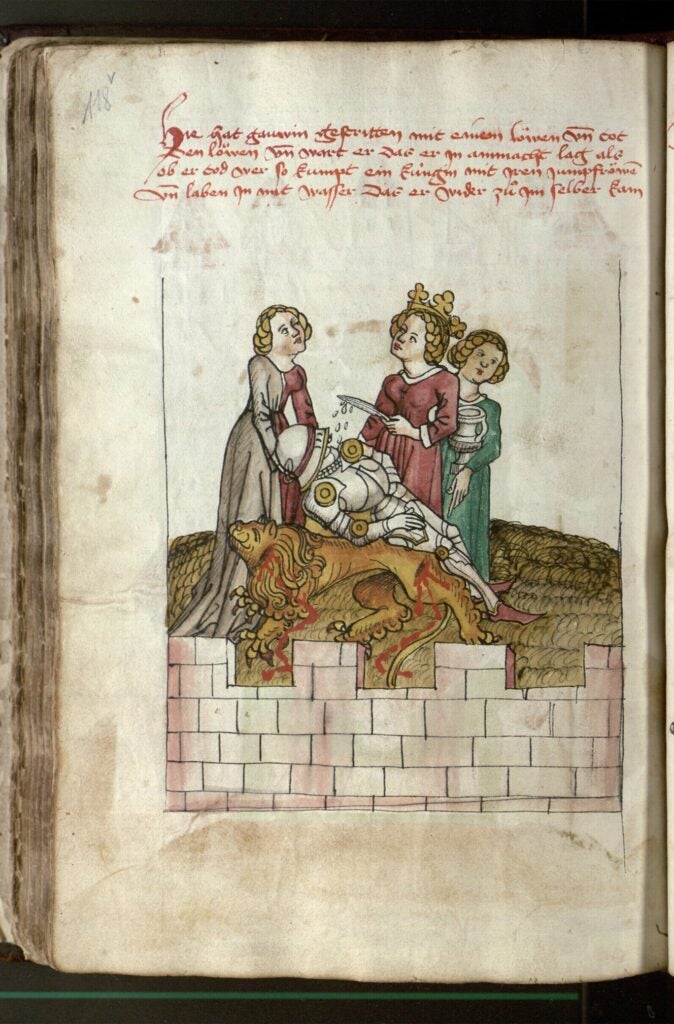 118v
Hie hat gawin gestritten mit einem löwen vn̄ tot
den löwen vn̄ wart er das er in anmacht lag als
ob er tod wer so kumpt ein kúngin mit iren jumpfröwen
vn̄ laben in mit wasser das er wider zů im selber kam